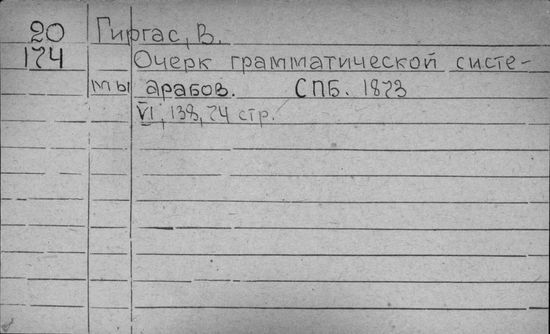 20 Гиргас, В.
174 Очерк грамматической систе-
мы арабов. СПБ. 1873
VI, 138, 74 стр.